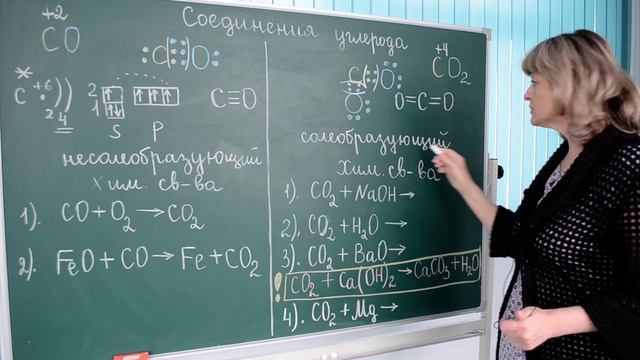 Соединения углерода
+2
CO
C O
* C +6 ) )
2 4
2 ↑ ↑↑↑
1 ↑↓
S P
C≡O
несолеобразующий
хим. св-ва
1). CO + O₂ → CO₂
2). FeO + CO → Fe + CO₂
+4
CO₂
C O
O
O=C=O
солеобразующий
хим. св-ва
1). CO₂ + NaOH →
2). CO₂ + H₂O →
3). CO₂ + BaO →
! CO₂ + Ca(OH)₂ → CaCO₃ + H₂O
4). CO₂ + Mg →